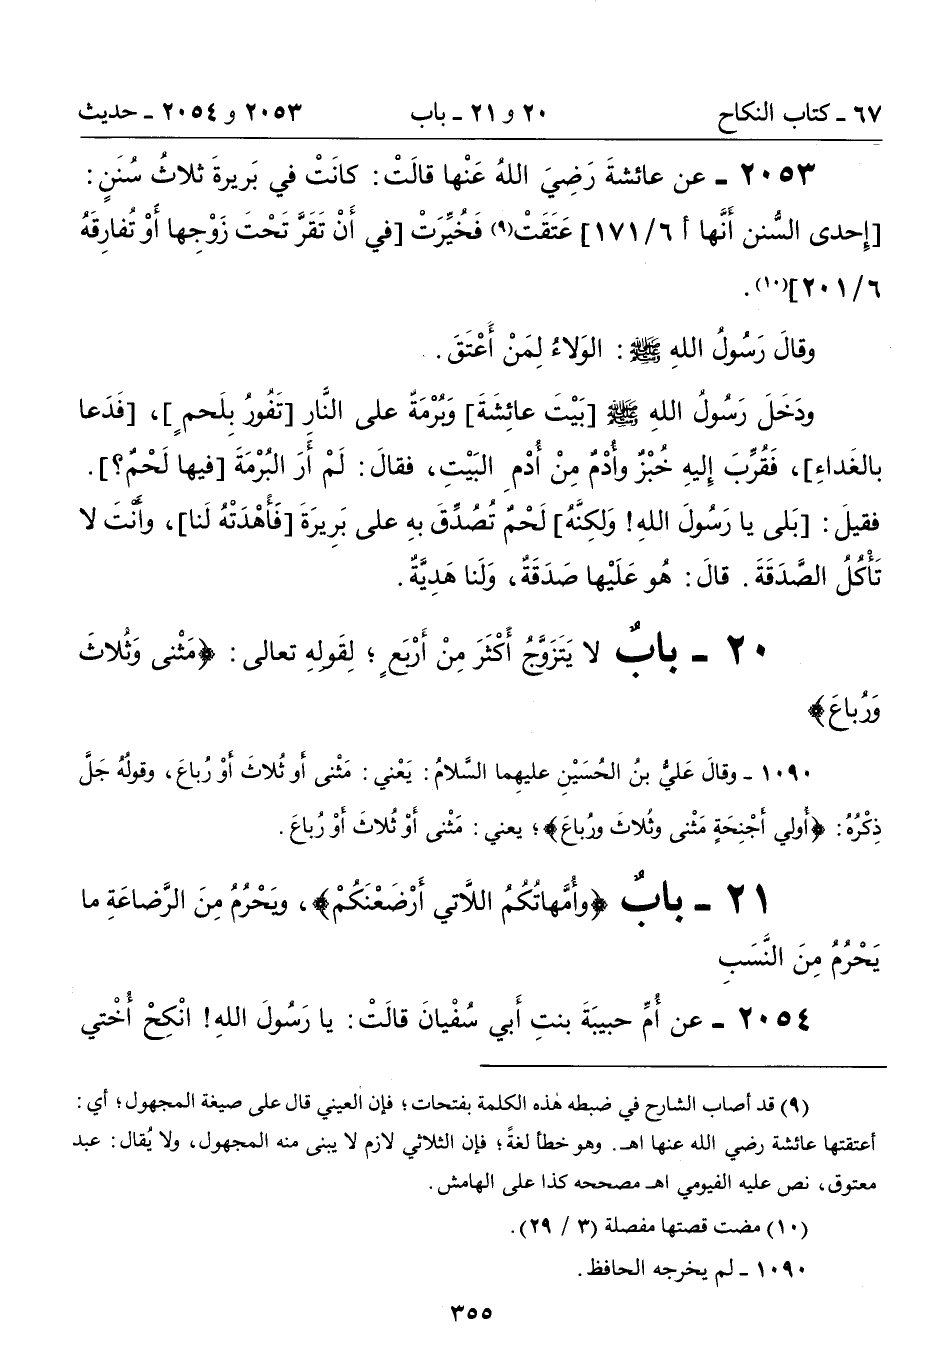 ٦٧ ـ كتاب النكاح ٢٠ و ٢١ ـ باب ٢٠٥٣ و ٢٠٥٤ ـ حديث
٢٠٥٣ ـ عن عائشةَ رَضِيَ اللهُ عَنْها قالَتْ: كانَتْ في بَريرةَ ثلاثُ سُنَنٍ:
[إحدى السُّنن أنَّها أ ٦/ ١٧١] عَتَقَتْ(٩) فَخُيِّرَتْ [في أنْ تَقَرَّ تَحْتَ زَوْجِها أوْ تُفارِقَهُ
٦/ ٢٠١](١٠).
وقالَ رَسُولُ اللهِ ﷺ: الوَلاءُ لِمَنْ أَعْتَقَ.
ودَخَلَ رَسُولُ اللهِ ﷺ [بَيْتَ عائشَةَ] وَبُرْمَةٌ على النَّارِ [تَفُورُ بِلَحمٍ]، [فَدَعا
بالغَداءِ]، فَقُرِّبَ إليهِ خُبْزٌ وأُدْمٌ مِنْ أُدْمِ البَيْتِ، فقالَ: لَمْ أَرَ البُرْمَةَ [فيها لَحْمٌ؟].
فقيلَ: [بَلى يا رَسُولَ اللهِ! وَلكِنَّهُ] لَحْمٌ تُصُدِّقَ بِهِ على بَرِيرَةَ [فَأَهْدَتْهُ لَنا]، وأَنْتَ لا
تَأْكُلُ الصَّدَقَةَ. قالَ: هُو عَلَيْها صَدَقَةٌ، وَلَنا هَدِيَّةٌ.
٢٠ ـ بابٌ لا يَتَزَوَّجُ أَكْثَرَ مِنْ أَرْبَعٍ؛ لِقَولِهِ تعالى: ﴿مَثْنى وَثُلاثَ
وَرُباعَ﴾
١٠٩٠ ـ وقالَ عَليُّ بنُ الحُسَيْنِ عليهما السَّلامُ: يَعْني: مَثْنى أو ثُلاثَ أوْ رُباعَ، وقولُهُ جَلَّ
ذِكْرُهُ: ﴿أُولي أجْنِحَةٍ مَثْنى وثُلاثَ ورُباعَ﴾؛ يعني: مَثْنى أوْ ثُلاثَ أوْ رُباعَ.
٢١ ـ بابٌ ﴿وأُمَّهاتُكُمُ اللَّاتي أَرْضَعْنَكُمْ﴾، ويَحْرُمُ مِنَ الرَّضاعَةِ ما
يَحْرُمُ مِنَ النَّسَبِ
٢٠٥٤ ـ عن أُمِّ حبيبَةَ بنتِ أَبي سُفْيانَ قالَتْ: يا رَسُولَ اللهِ! انْكِحْ أُخْتي
(٩) قد أصاب الشارح في ضبطه هذه الكلمة بفتحات؛ فإن العيني قال على صيغة المجهول؛ أي:
أعتقتها عائشة رضي الله عنها اهـ. وهو خطأ لغةً؛ فإن الثلاثي لازم لا يبنى منه المجهول، ولا يُقال: عبد
معتوق، نص عليه الفيومي اهـ مصححه كذا على الهامش.
(١٠) مضت قصتها مفصلة (٣ / ٢٩).
١٠٩٠ ـ لم يخرجه الحافظ.
٣٥٥